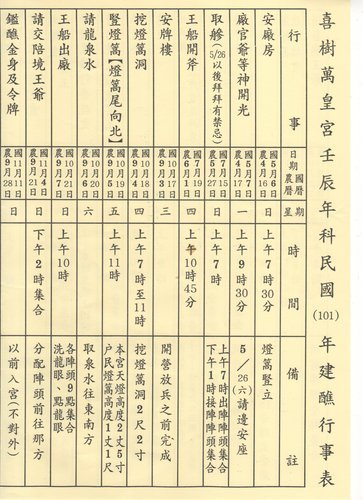 喜樹萬皇宮壬辰年科民國(101)年建醮行事表
行事 日期 國曆 農曆 星期 時間 備註
安廠房 國5月6日 農4月16日 日 上午7時30分 燈篙豎立
廠官爺等神開光 國5月7日 農4月17日 一 上午9時30分 5/26(六)請邊安座
取艌(5/26以後拜拜有禁忌) 國7月15日 農5月27日 日 上午7時 上午7時出陣陣頭集合
下午1時接陣陣頭集合
王船開斧 國7月19日 農6月1日 四 上午10時45分
安牌樓 國10月17日 農9月3日 三 開營放兵之前完成
挖燈篙洞 國10月18日 農9月4日 四 上午7時至11時 挖燈篙洞2尺2寸
豎燈篙【燈篙尾向北】 國10月19日 農9月5日 五 上午11時 本宮天燈高度2丈5寸
戶民燈篙高度1丈1尺
請龍泉水 國10月20日 農9月6日 六 取泉水往東南方
王船出廠 國10月21日 農9月7日 日 上午10時 各陣頭9點集合
洗龍眼、點龍眼
請交陪境王爺 國11月4日 農9月21日 日 下午2時集合 分配陣頭前往那方
鑑醮金身及令牌 國11月11日 農9月28日 日 以前入宮(不對外)